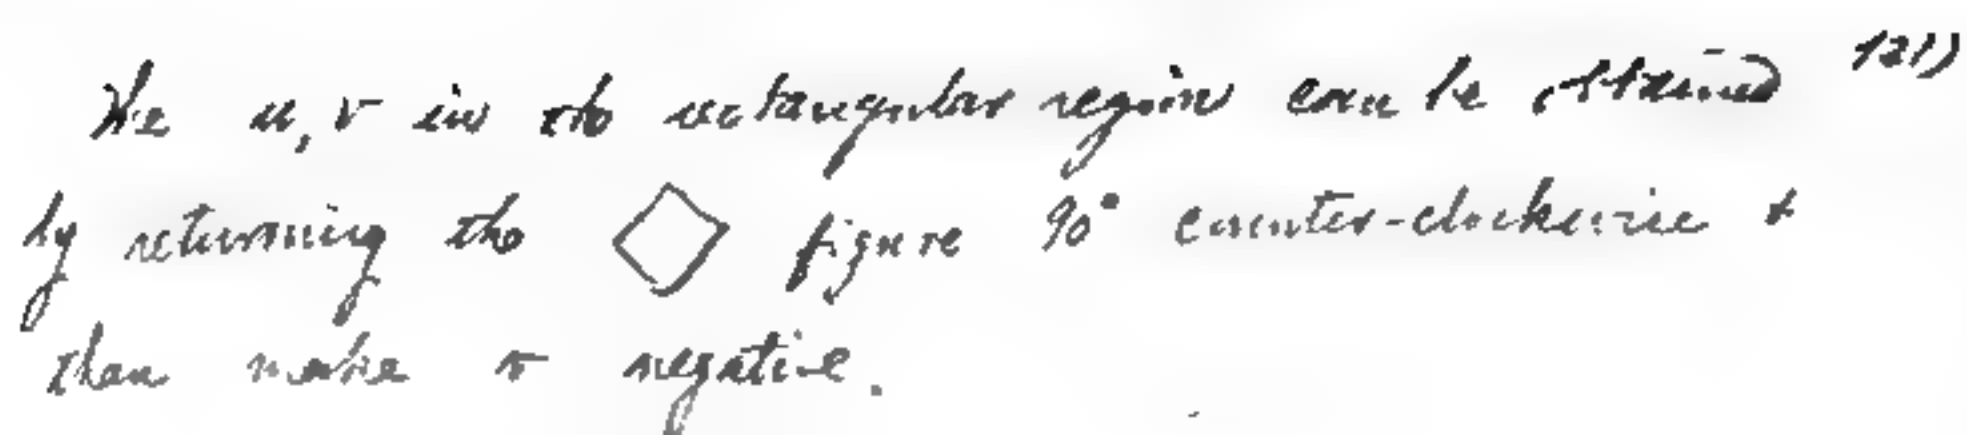 The u, v in the rectangular region can be obtained 121)
by returning the ◇ figure 90° counter-clockwise &
than make v negative.